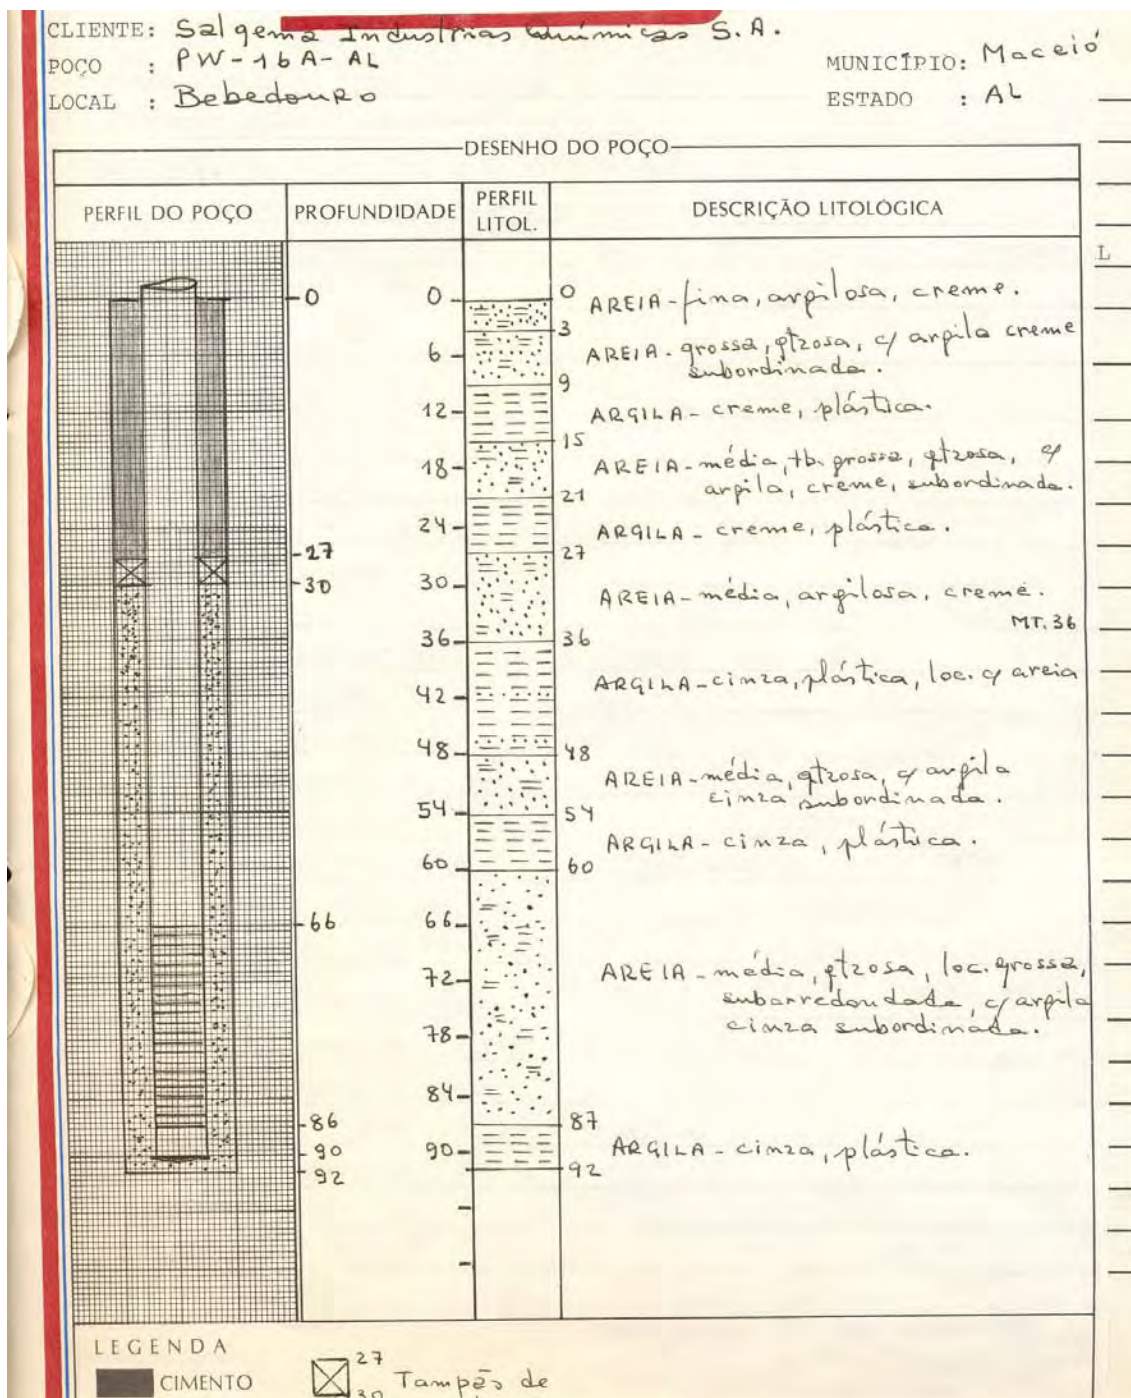 CLIENTE: Salgema Industrias Químicas S.A.
POÇO : PW-16A-AL
MUNICÍPIO: Maceió
LOCAL : Bebedouro
ESTADO : AL
DESENHO DO POÇO
PERFIL DO POÇO
PROFUNDIDADE
PERFIL LITOL.
DESCRIÇÃO LITOLÓGICA
L
0 0 0 AREIA-fina, argilosa, creme.
3
6 AREIA-grossa, qtzosa, c/ argila creme
subordinada.
9
12 ARGILA-creme, plástica.
15
18 AREIA-média, tb. grossa, qtzosa, c/
argila, creme, subordinada.
21
24 ARGILA-creme, plástica.
27 27
30 30 AREIA-média, argilosa, creme.
MT.36
36 36
ARGILA-cinza, plástica, loc. c/ areia
42
48 48
AREIA-média, qtzosa, c/ argila
cinza subordinada.
54 54
ARGILA-cinza, plástica.
60 60
66 66
72 AREIA-média, qtzosa, loc. grossa,
subarredondada, c/ argila
cinza subordinada.
78
84
86 87
90 90 ARGILA-cinza, plástica.
92 92
LEGENDA
CIMENTO
27
30
Tampão de